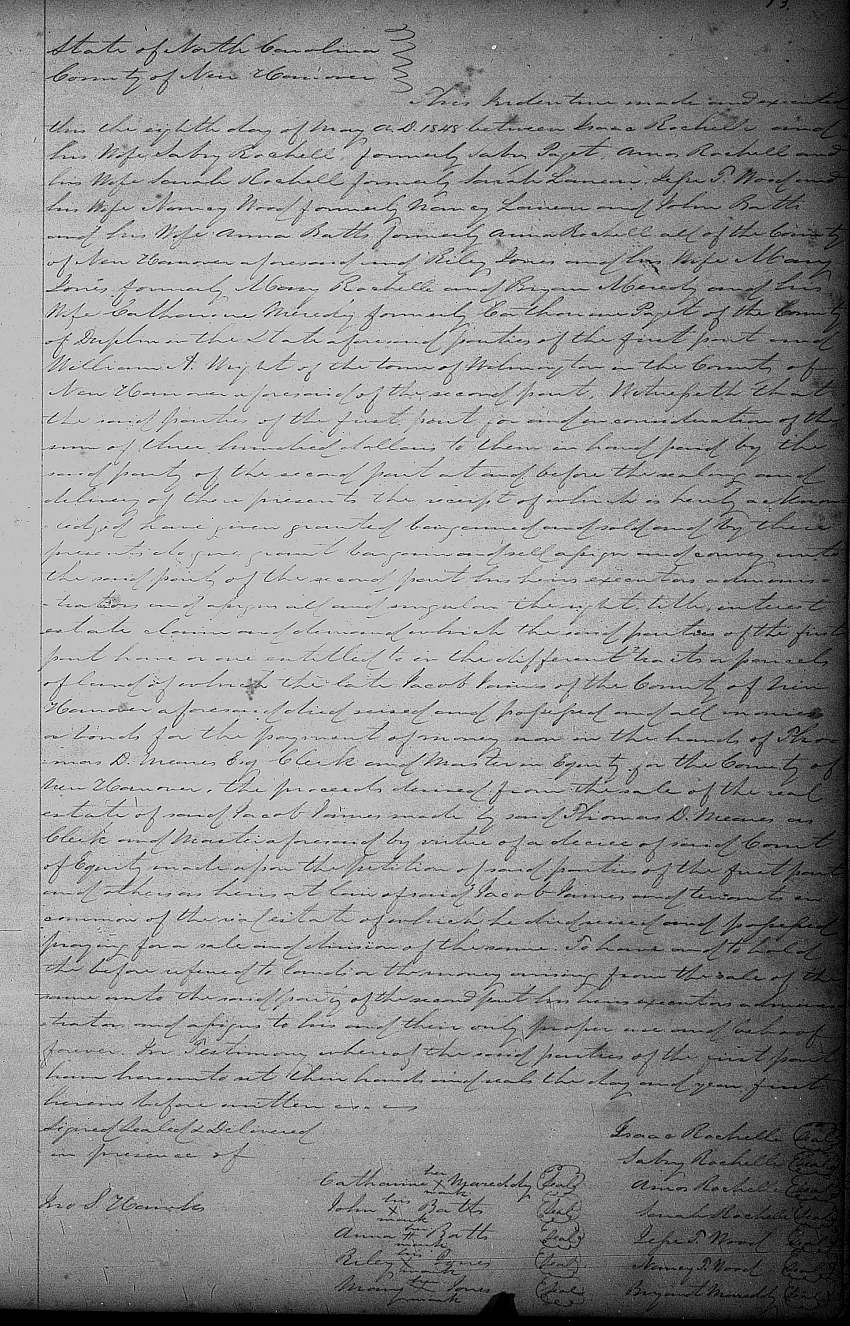 13.
State of North Carolina
County of New Hanover
This Indenture made and executed
this the eighth day of May A.D. 1848 between Isaac Rochelle and
his Wife Sabry Rochell, formerly Sabry Paget, Amos Rochell and
his Wife Sarah Rochell formerly Sarah Lanear, Jesse T. Wood and
his Wife Nancy Wood formerly Nancy Lanear and John Batts
and his Wife Anna Batts formerly Anna Rochell all of the County
of New Hanover aforesaid and Riley Jones and his Wife Mary
Jones formerly Mary Rochelle and Bryan Meredy and his
Wife Catharine Meredy formerly Catharine Paget of the County
of Duplin in the State aforesaid parties of the first part and
William A. Wright of the town of Wilmington in the County of
New Hanover aforesaid of the second part, Witnesseth that
the said parties of the first part for and in consideration of the
sum of three hundred dollars to them in hand paid by the
said party of the second part at and before the sealing and
delivery of these presents the receipt of which is hereby acknow
-ledged have given granted bargained and sold and by these
presents do give grant bargain and sell assign and convey unto
the said party of the second part his heirs executors adminis
-trators and assigns all and singular the right, title, interest
estate claim and demand which the said parties of the first
part have or are entitled to in the different tracts or parcels
of land of which the late Jacob James of the County of New
Hanover aforesaid died seized and possessed and all monies
or bonds for the payment of money now in the hands of Tho
-mas D. Meares Esq Clerk and Master in Equity for the County of
New Hanover, the proceeds derived from the sale of the real
estate of said Jacob James made by said Thomas D. Meares as
Clerk and Master aforesaid by virtue of a decree of said Court
of Equity made upon the Petition of said parties of the first part
and others as heirs at law of said Jacob James and tenants in
common of the real estate of which he died seized and possessed
praying for a sale and division of the same. To have and to hold
the before refered to land or the money arising from the sale of the
same unto the said party of the second part his heirs executors adminis
-trators and assigns to his and their only proper use and behoof
forever. In Testimony whereof the said parties of the first part
have hereunto set their hands and seals the day and year first
herein before written
Signed Sealed & Delivered
in presence of
Isaac Rochelle Seal
Sabry Rochelle Seal
Catharine her X mark Mareddy Seal
Amos Rochelle Seal
John his X mark Batts Seal
Sarah Rochelle Seal
Anna her mark Batts Seal
Jesse T. Wood Seal
Riley his X mark Jones Seal
Nancy T. Wood Seal
Mary her mark Jones Seal
Bryant Mareddy Seal